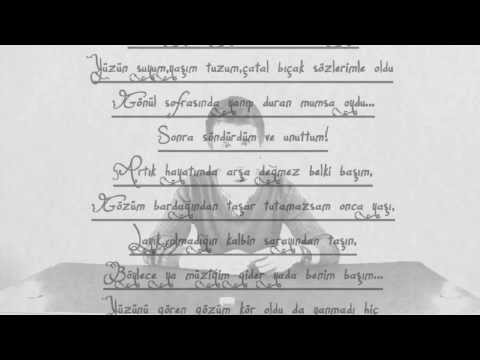 Yüzün suyum,yaşım tuzum,çatal bıçak sözlerimle oldu
Gönül sofrasında yanıp duran mumsa oydu...
Sonra söndürdüm ve unuttum!
Artık hayatımda arşa değmez belki başım,
Gözüm bardağından taşar tutamazsam onca yaşı,
Layık olmadığın kalbin sarayından taşın,
Böylece ya müziğim gider yada benim başım...
Yüzünü gören gözüm kör oldu da yanmadı hiç